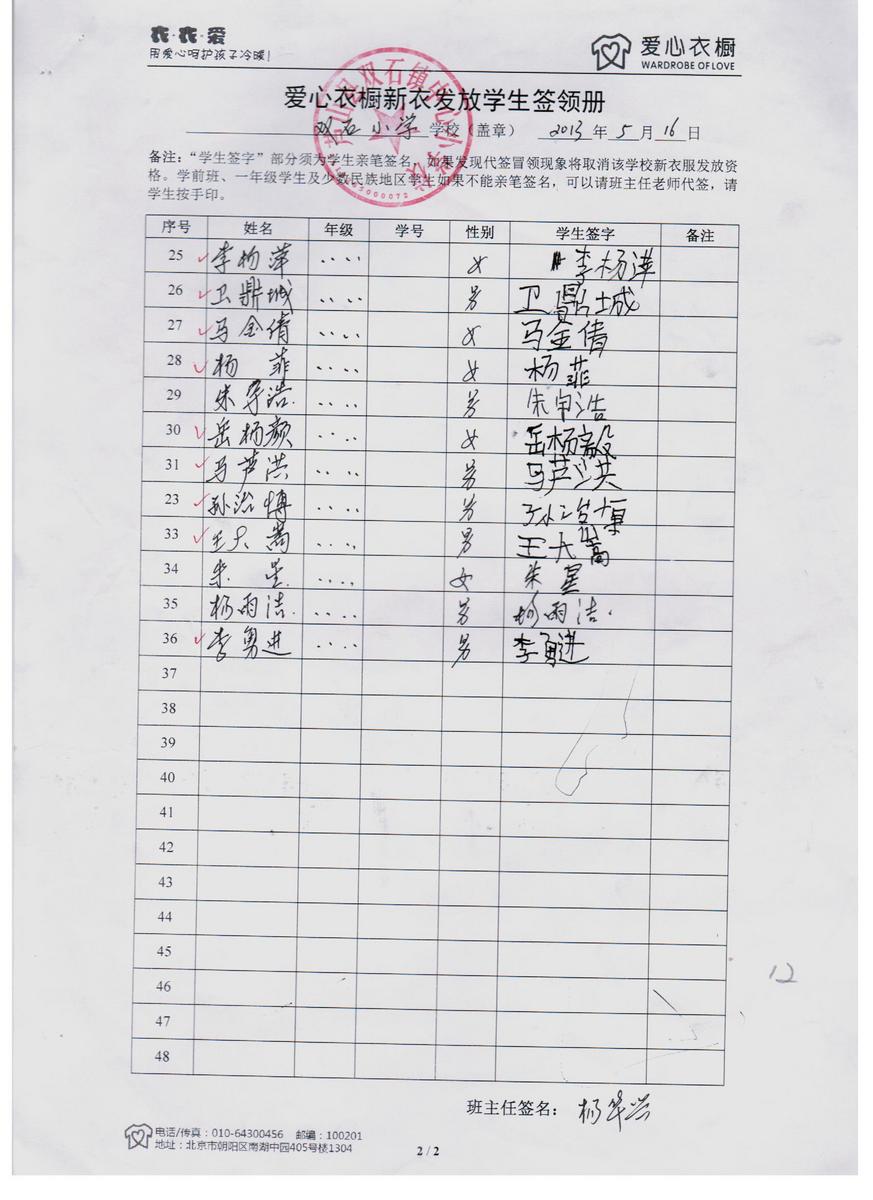 衣·衣·爱
用爱心呵护孩子冷暖!
爱心衣橱
WARDROBE OF LOVE
爱心衣橱新衣发放学生签领册
双石小学 学校（盖章） 2013 年 5 月 16 日
备注：“学生签字”部分须为学生亲笔签名，如果发现代签冒领现象将取消该学校新衣服发放资
格。学前班、一年级学生及少数民族地区学生如果不能亲笔签名，可以请班主任老师代签，请
学生按手印。
芦山县双石镇中心小学校
序号 姓名 年级 学号 性别 学生签字 备注
25 李杨萍 女 李杨萍
26 卫鼎城 男 卫鼎城
27 马金倩 女 马金倩
28 杨菲 女 杨菲
29 朱宇浩 男 朱宇浩
30 岳杨颜 女 岳杨毅
31 马芦洪 男 马芦洪
23 孙治博 男 孙治博
33 王大嵩 男 王大嵩
34 朱星 女 朱星
35 杨雨洁 男 杨雨洁
36 李勇进 男 李勇进
37
38
39
40
41
42
43
44
45
46
47
48
12
班主任签名：杨华兴
电话/传真：010-64300456 邮编：100201
地址：北京市朝阳区南湖中园405号楼1304
2 / 2